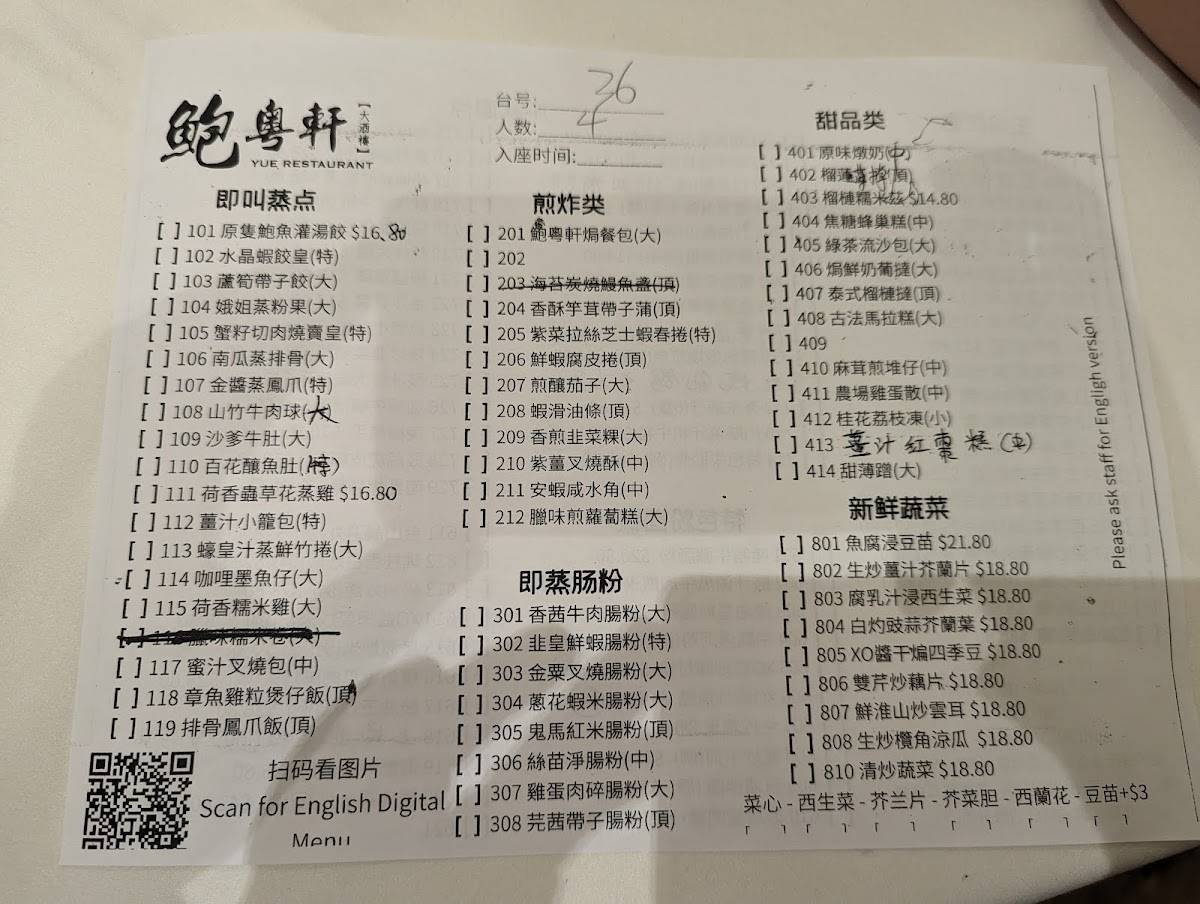 鮑粵軒
【大酒樓】
YUE RESTAURANT
台号: 36
人数: 4
入座时间:
即叫蒸点
[ ] 101 原隻鮑魚灌湯餃 $16.80
[ ] 102 水晶蝦餃皇(特)
[ ] 103 蘆筍帶子餃(大)
[ ] 104 娥姐蒸粉果(大)
[ ] 105 蟹籽切肉燒賣皇(特)
[ ] 106 南瓜蒸排骨(大)
[ ] 107 金醬蒸鳳爪(特)
[ ] 108 山竹牛肉球(大)
[ ] 109 沙爹牛肚(大)
[ ] 110 百花釀魚肚(特)
[ ] 111 荷香蟲草花蒸雞 $16.80
[ ] 112 薑汁小籠包(特)
[ ] 113 蠔皇汁蒸鮮竹捲(大)
[ ] 114 咖哩墨魚仔(大)
[ ] 115 荷香糯米雞(大)
[ ] 116 臘味糯米卷(大)
[ ] 117 蜜汁叉燒包(中)
[ ] 118 章魚雞粒煲仔飯(頂)
[ ] 119 排骨鳳爪飯(頂)
扫码看图片
Scan for English Digital
Menu
煎炸类
[ ] 201 鮑粵軒焗餐包(大)
[ ] 202
[ ] 203 海苔炭燒鰻魚盞(頂)
[ ] 204 香酥竽茸帶子蒲(頂)
[ ] 205 紫菜拉絲芝士蝦春捲(特)
[ ] 206 鮮蝦腐皮捲(頂)
[ ] 207 煎釀茄子(大)
[ ] 208 蝦滑油條(頂)
[ ] 209 香煎韭菜粿(大)
[ ] 210 紫薑叉燒酥(中)
[ ] 211 安蝦咸水角(中)
[ ] 212 臘味煎蘿蔔糕(大)
即蒸肠粉
[ ] 301 香茜牛肉腸粉(大)
[ ] 302 韭皇鮮蝦腸粉(特)
[ ] 303 金粟叉燒腸粉(大)
[ ] 304 蔥花蝦米腸粉(大)
[ ] 305 鬼馬紅米腸粉(頂)
[ ] 306 絲苗淨腸粉(中)
[ ] 307 雞蛋肉碎腸粉(大)
[ ] 308 芫茜帶子腸粉(頂)
甜品类
[ ] 401 原味燉奶(中)
[ ] 402 榴蓮(頂)
[ ] 403 榴槤糯米茲 $14.80
[ ] 404 焦糖蜂巢糕(中)
[ ] 405 綠茶流沙包(大)
[ ] 406 焗鮮奶葡撻(大)
[ ] 407 泰式榴槤撻(頂)
[ ] 408 古法馬拉糕(大)
[ ] 409
[ ] 410 麻茸煎堆仔(中)
[ ] 411 農場雞蛋散(中)
[ ] 412 桂花荔枝凍(小)
[ ] 413 薑汁紅棗糕(中)
[ ] 414 甜薄蹭(大)
新鲜蔬菜
[ ] 801 魚腐浸豆苗 $21.80
[ ] 802 生炒薑汁芥蘭片 $18.80
[ ] 803 腐乳汁浸西生菜 $18.80
[ ] 804 白灼豉蒜芥蘭葉 $18.80
[ ] 805 XO醬干煸四季豆 $18.80
[ ] 806 雙芹炒藕片 $18.80
[ ] 807 鮮淮山炒雲耳 $18.80
[ ] 808 生炒欖角涼瓜 $18.80
[ ] 810 清炒蔬菜 $18.80
菜心 - 西生菜 - 芥兰片 - 芥菜胆 - 西蘭花 - 豆苗+$3
Please ask staff for Engligh version